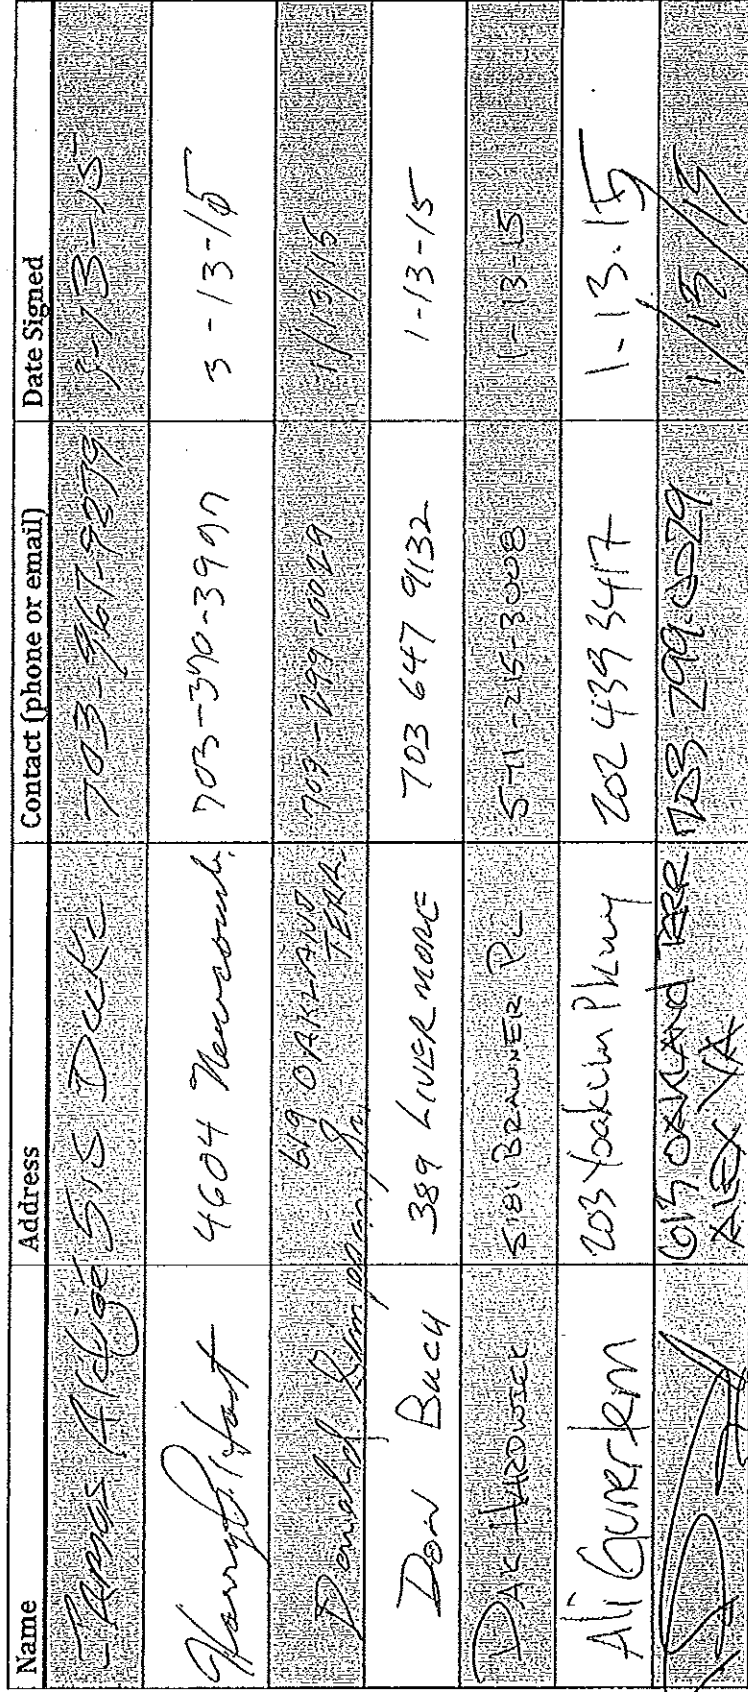 Name Address Contact (phone or email) Date Signed
James 515 Duke 703-967-9279 -13-15
Harry P. Hart 4604 703-370-3997 3-13-15
Donald Simpson Jr. 619 OAKLAND TERR. 703-299-0029 1/13/15
Don Buch 389 LIVERMORE 703 647 9132 1-13-15
DAK HARDWICK 5181 BRAWNER PL 571-215-3008 1-13-15
Ali Gunertem 203 Yoakum Pkwy 202 439 3417 1-13-15
613 OAKLAND TERR 703 299.0029
ALEX VA